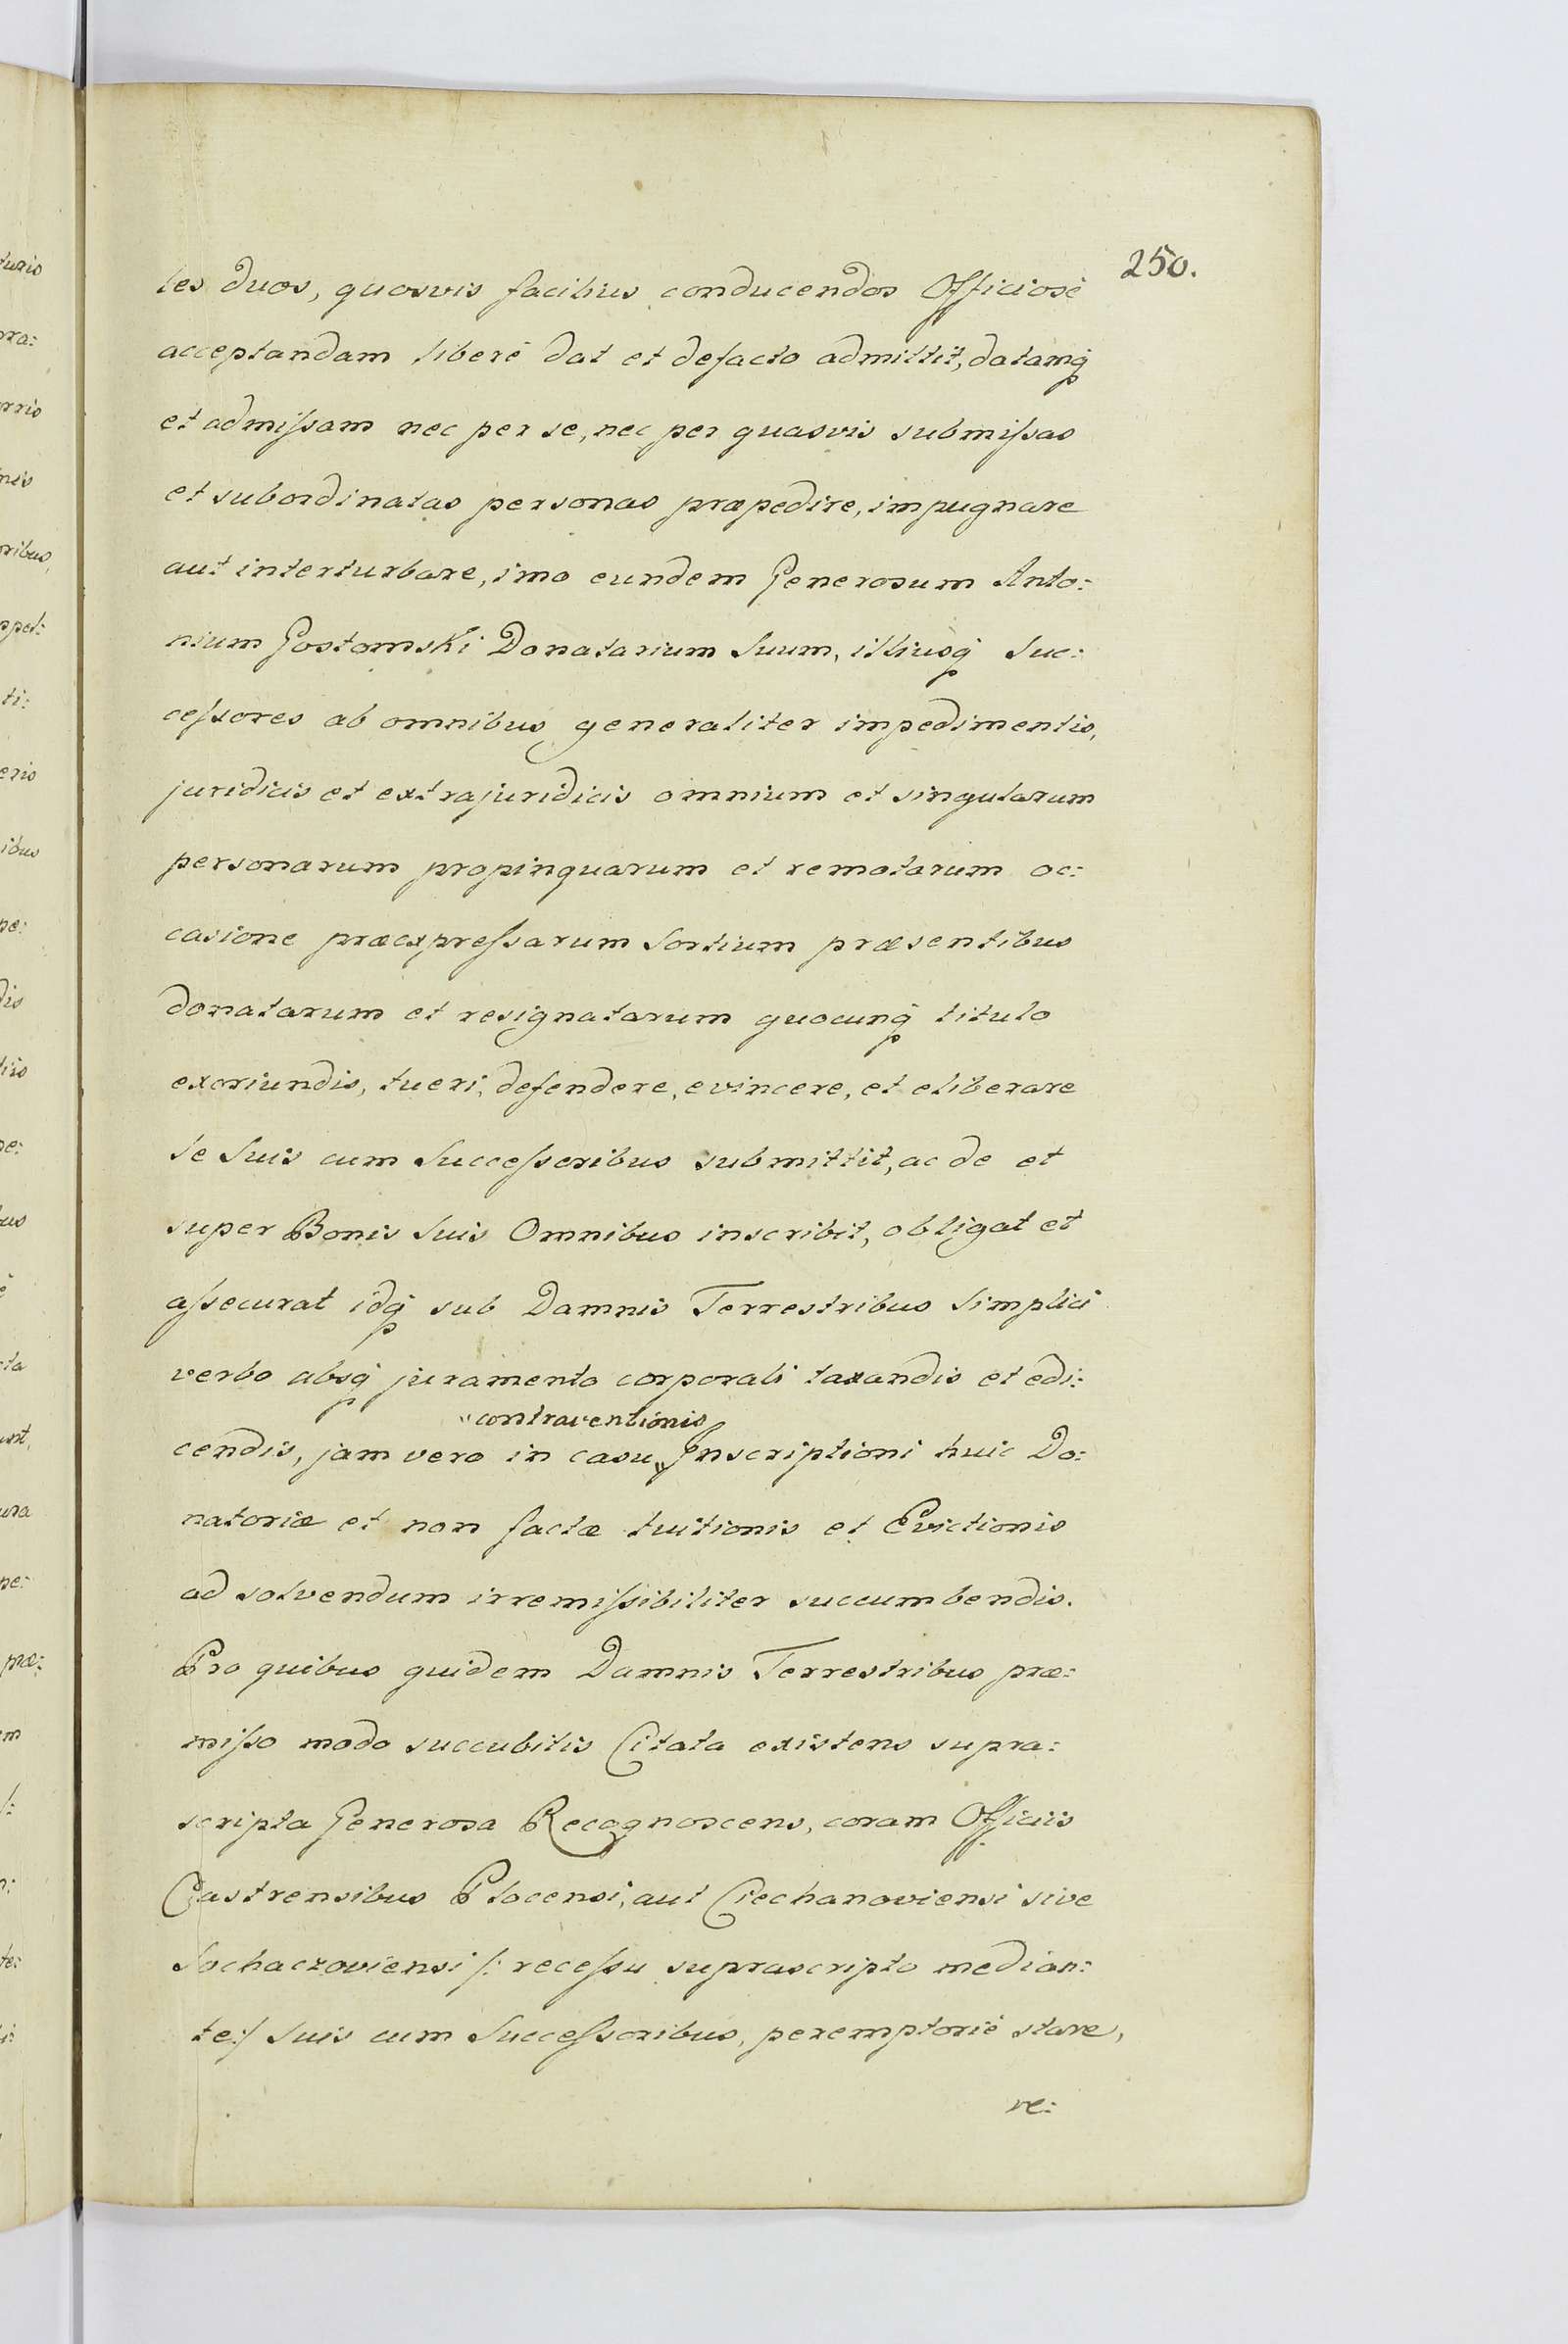 250.
les duos, quosvis facilius conducendos Officiosè
acceptandam liberè dat et defacto admittit, datamq
et admiſsam nec per se, nec per quasvis submiſsas
et subordinatas personas præpedire, impugnare
aut interturbare, imo eundem Generosum Anto:
nium Gostomski Donatarium Suum, illiusq Suc:
ceſsores ab omnibus generaliter impedimentis,
juridicis et extrajuridicis omnium et singularum
personarum propinquarum et remotarum oc:
casione præexpreſsarum Sortium præsentibus
donatarum et resignatarum quocunq titulo
exoriundis, tueri, defendere, evincere, et eliberare
Se Suis cum Succeſsoribus submittit, ac de et
super Bonis Suis Omnibus inscribit, obligat et
aſsecurat idq sub Damnis Terrestribus Simplici
verbo absq juramento corporali taxandis et edi:
"contraventionis
cendis, jam vero in casu " Inscriptioni huic Do:
natoriæ et non factæ tuitionis et Evictionis
ad solvendum irremiſsibiliter succumbendis.
Pro quibus quidem Damnis Terrestribus præ:
miſso modo succubitis Citata existens supra:
scripta Generosa Recognoscens, coram Officiis
Castrensibus Plocensi, aut Ciechanoviensi sive
Sochaczoviensi /: receſsu suprascripto median:
te:/ Suis cum Succeſsoribus, peremptoriè stare,
re: